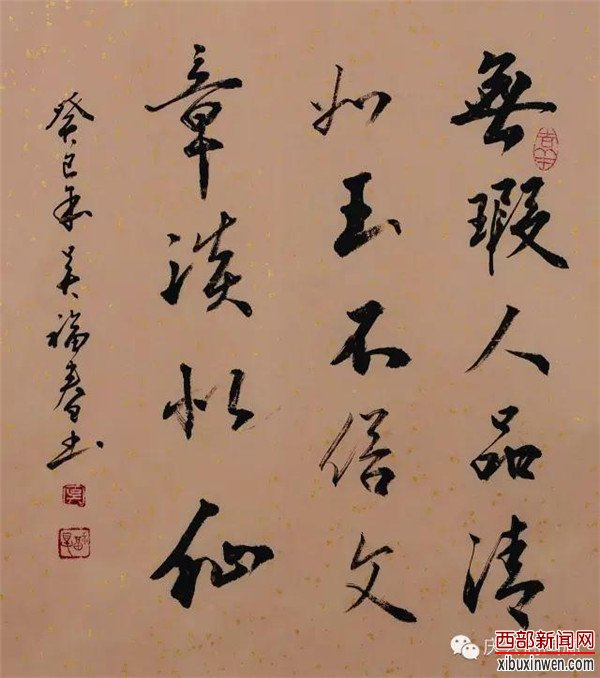 無瑕人品清
如玉不俗文
章淡似仙
癸巳年吴福春书
西部新闻网
xibuxinwen.com